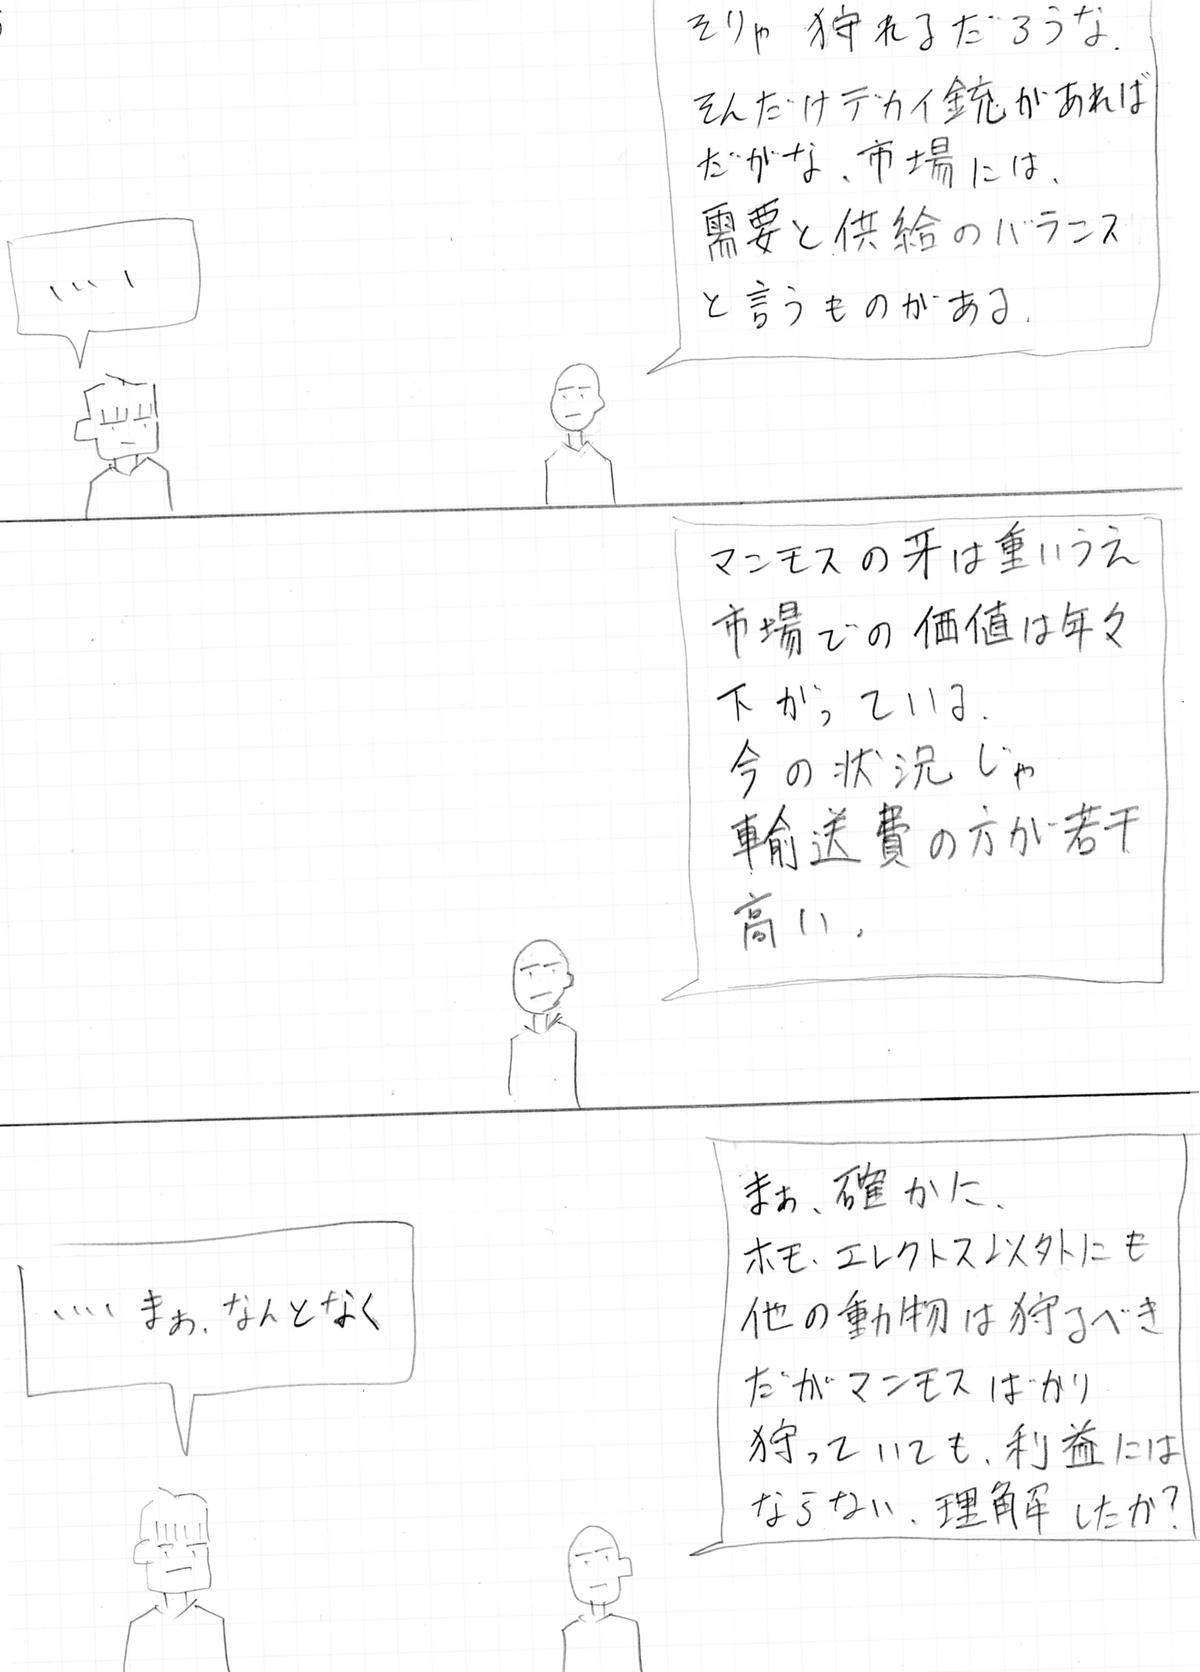 そりゃ 狩れるだろうな.
そんだけデカイ銃があれば
だがな、市場には、
需要と供給のバランス
と言うものがある.
、、、、
マンモスの牙は重いうえ
市場での価値は年々
下がっている.
今の状況じゃ
輸送費の方が若干
高い.
まぁ、確かに、
ホモ・エレクトス以外にも
他の動物は狩るべき
だがマンモスばかり
狩っていても、利益には
ならない、理解したか?
、、、、まぁ、なんとなく